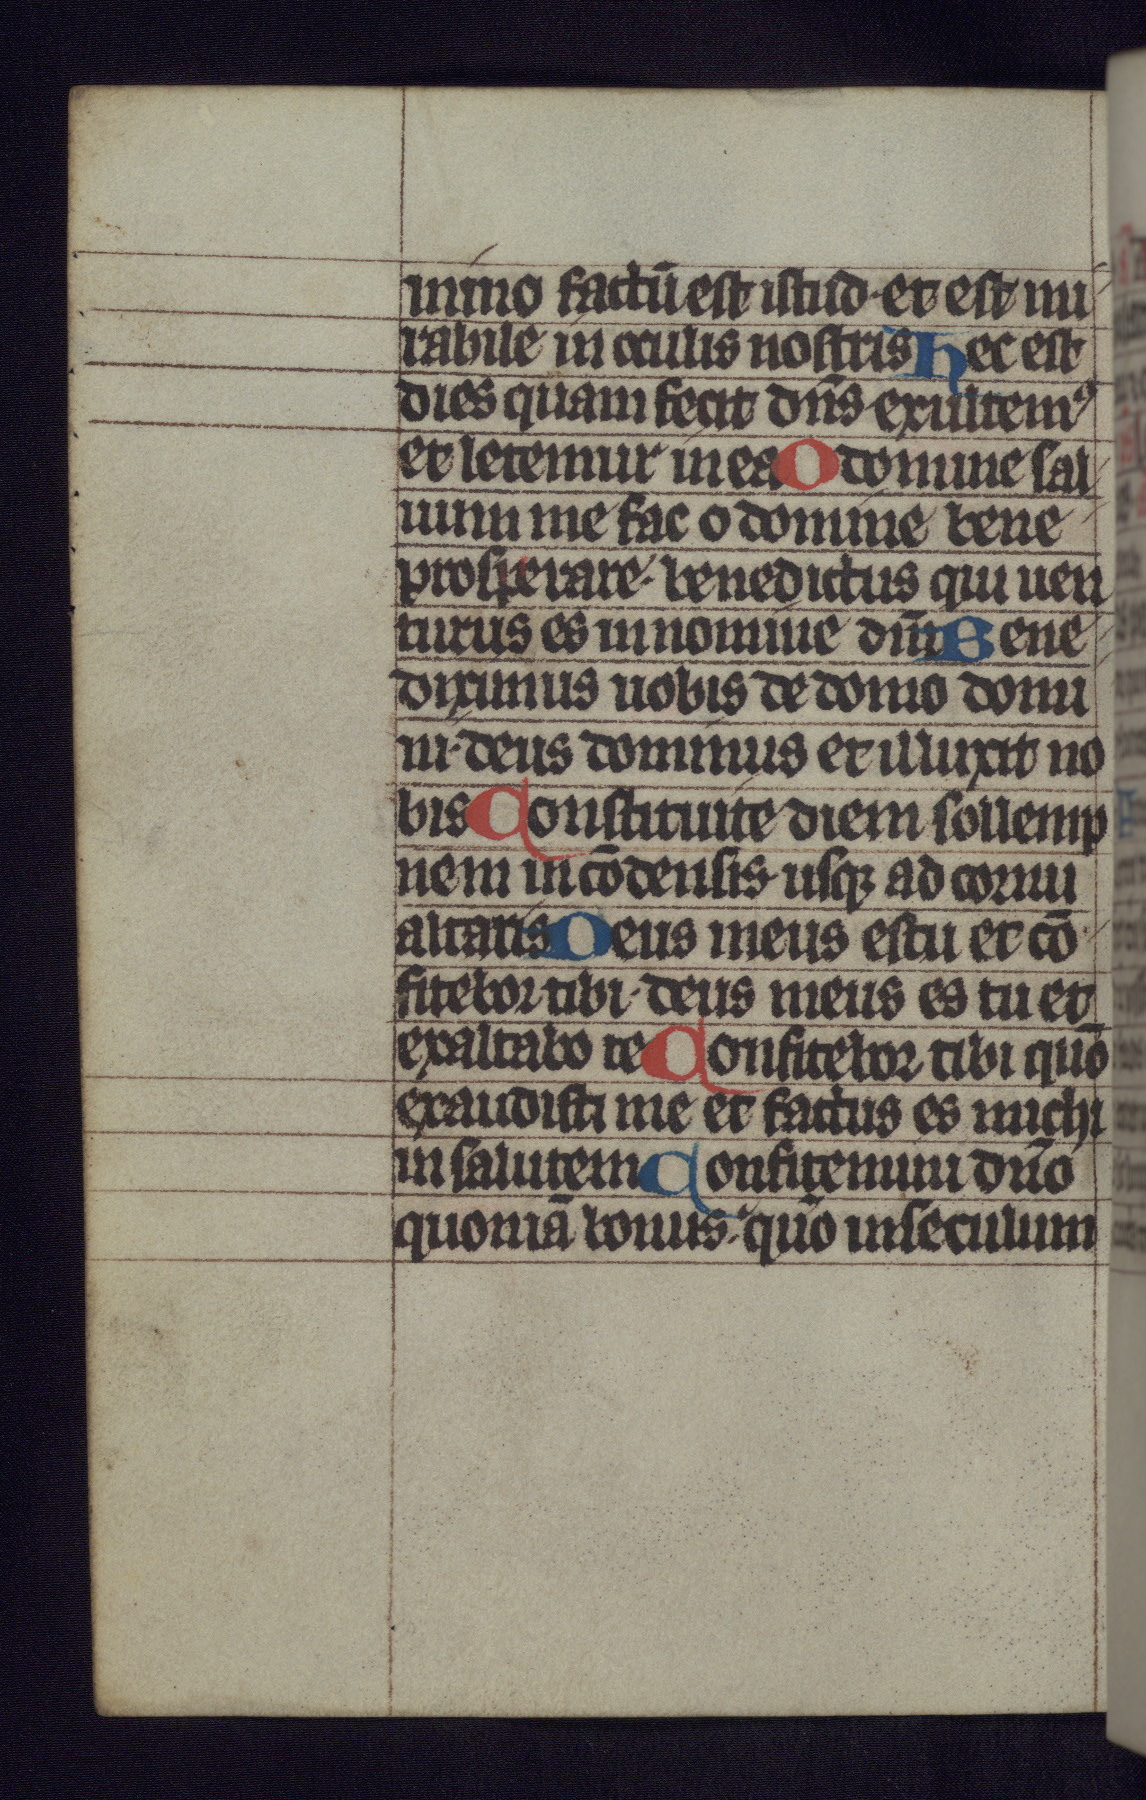 mino factū est istud· et est mi
rabile in oculis nostris Hec est
dies quam fecit dn̄s· exultemꝰ
et letemur in ea O domine sal
uum me fac o domine bene
prosperare· benedictus qui uen
turus es in nomine dn̄i Bene
diximus uobis de domo domi
ni· deus dominus et illuxit no
bis Constituite diem sollemp
nem in cōdensis· usqꝫ ad cornu
altaris Deus meus es tu et cō
fitebor tibi· deus meus es tu et
exaltabo te Confitebor tibi quō
exaudisti me et factus es michi
in salutem Confitemini dn̄o
quoniā bonus· quō in seculum